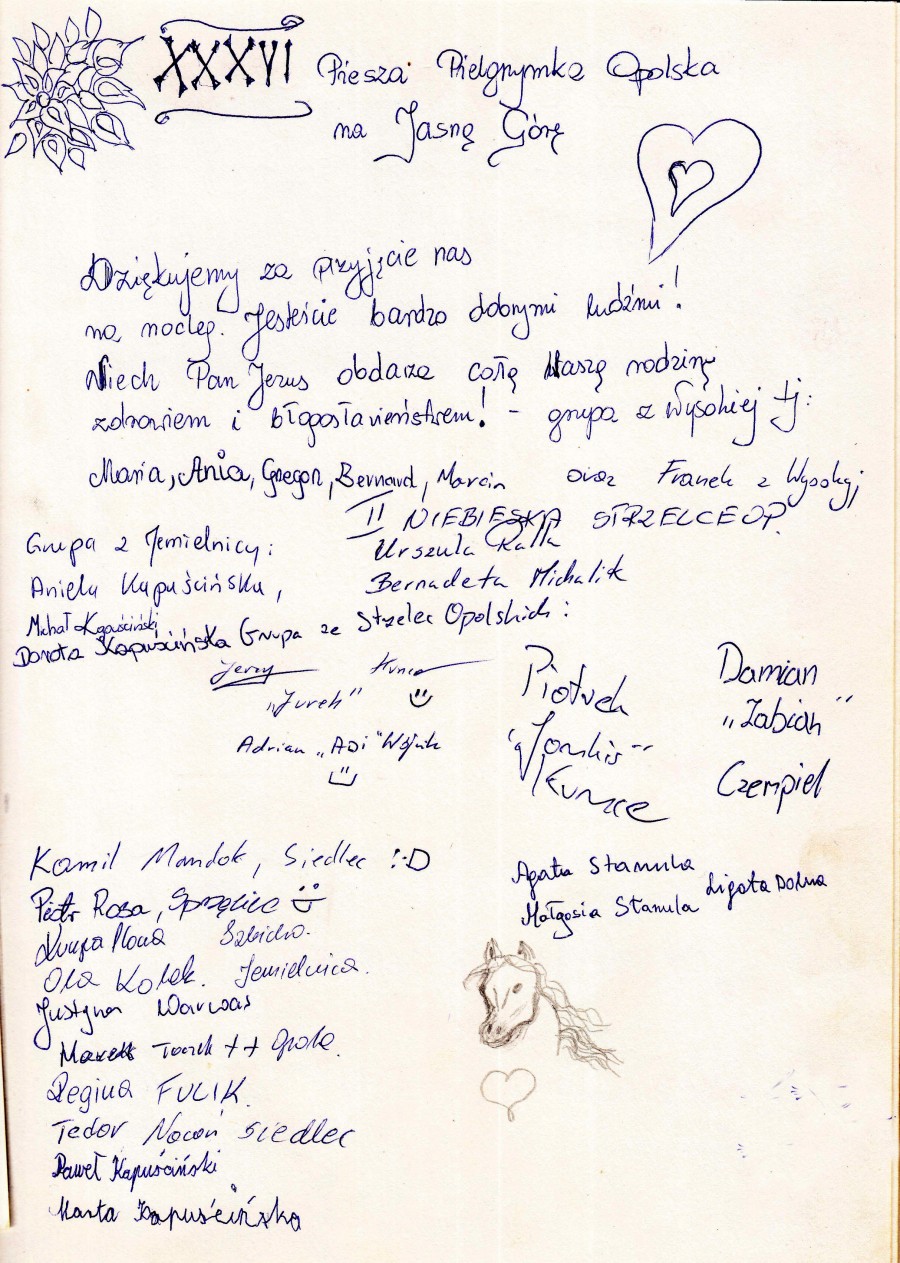 XXXVI Piesza Pielgrzymka Opolska
na Jasną Górę
Dziękujemy za przyjęcie nas
na nocleg. Jesteście bardzo dobrymi ludźmi!
Niech Pan Jezus obdarza całą Waszą rodzinę
zdrowiem i błogosławieństwem! - grupa z Wysokiej tj:
Maria, Ania, Gregor, Bernard, Marcin oraz Franek z Wysokiej
II NIEBIESKA STRZELCE OP.
Grupa z Jemielnicy:
Urszula Ralla
Aniela Kapuścińska,
Bernadeta Michalik
Michał Kapuściński
Dorota Kapuścińska
Grupa ze Strzelec Opolskich:
Jerzy Kunce
"Jurek"
Adrian "ADI" Wójcik
Piotrek
Kunce
Damian
"Żabian"
Czempiel
Kamil Mandok, Siedlec !:-D
Piotr Rosa,
Agata Stamula
Małgosia Stamula
Ligota Dolna
Ola Kołek. Jemielnica.
Justyna Warwas
Marek ++ Opole.
Regina FULIK.
Tedor Nocoń Siedlec
Paweł Kapuściński
Marta Kapuścińska